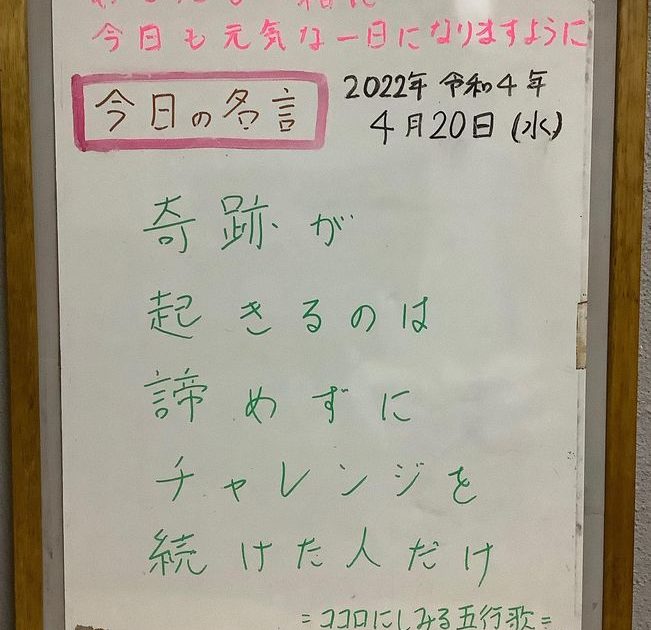 今日も元気な一日になりますように
今日の名言
2022年 令和4年
4月20日(水)
奇跡が
起きるのは
諦めずに
チャレンジを
続けた人だけ
=ココロにしみる五行歌=